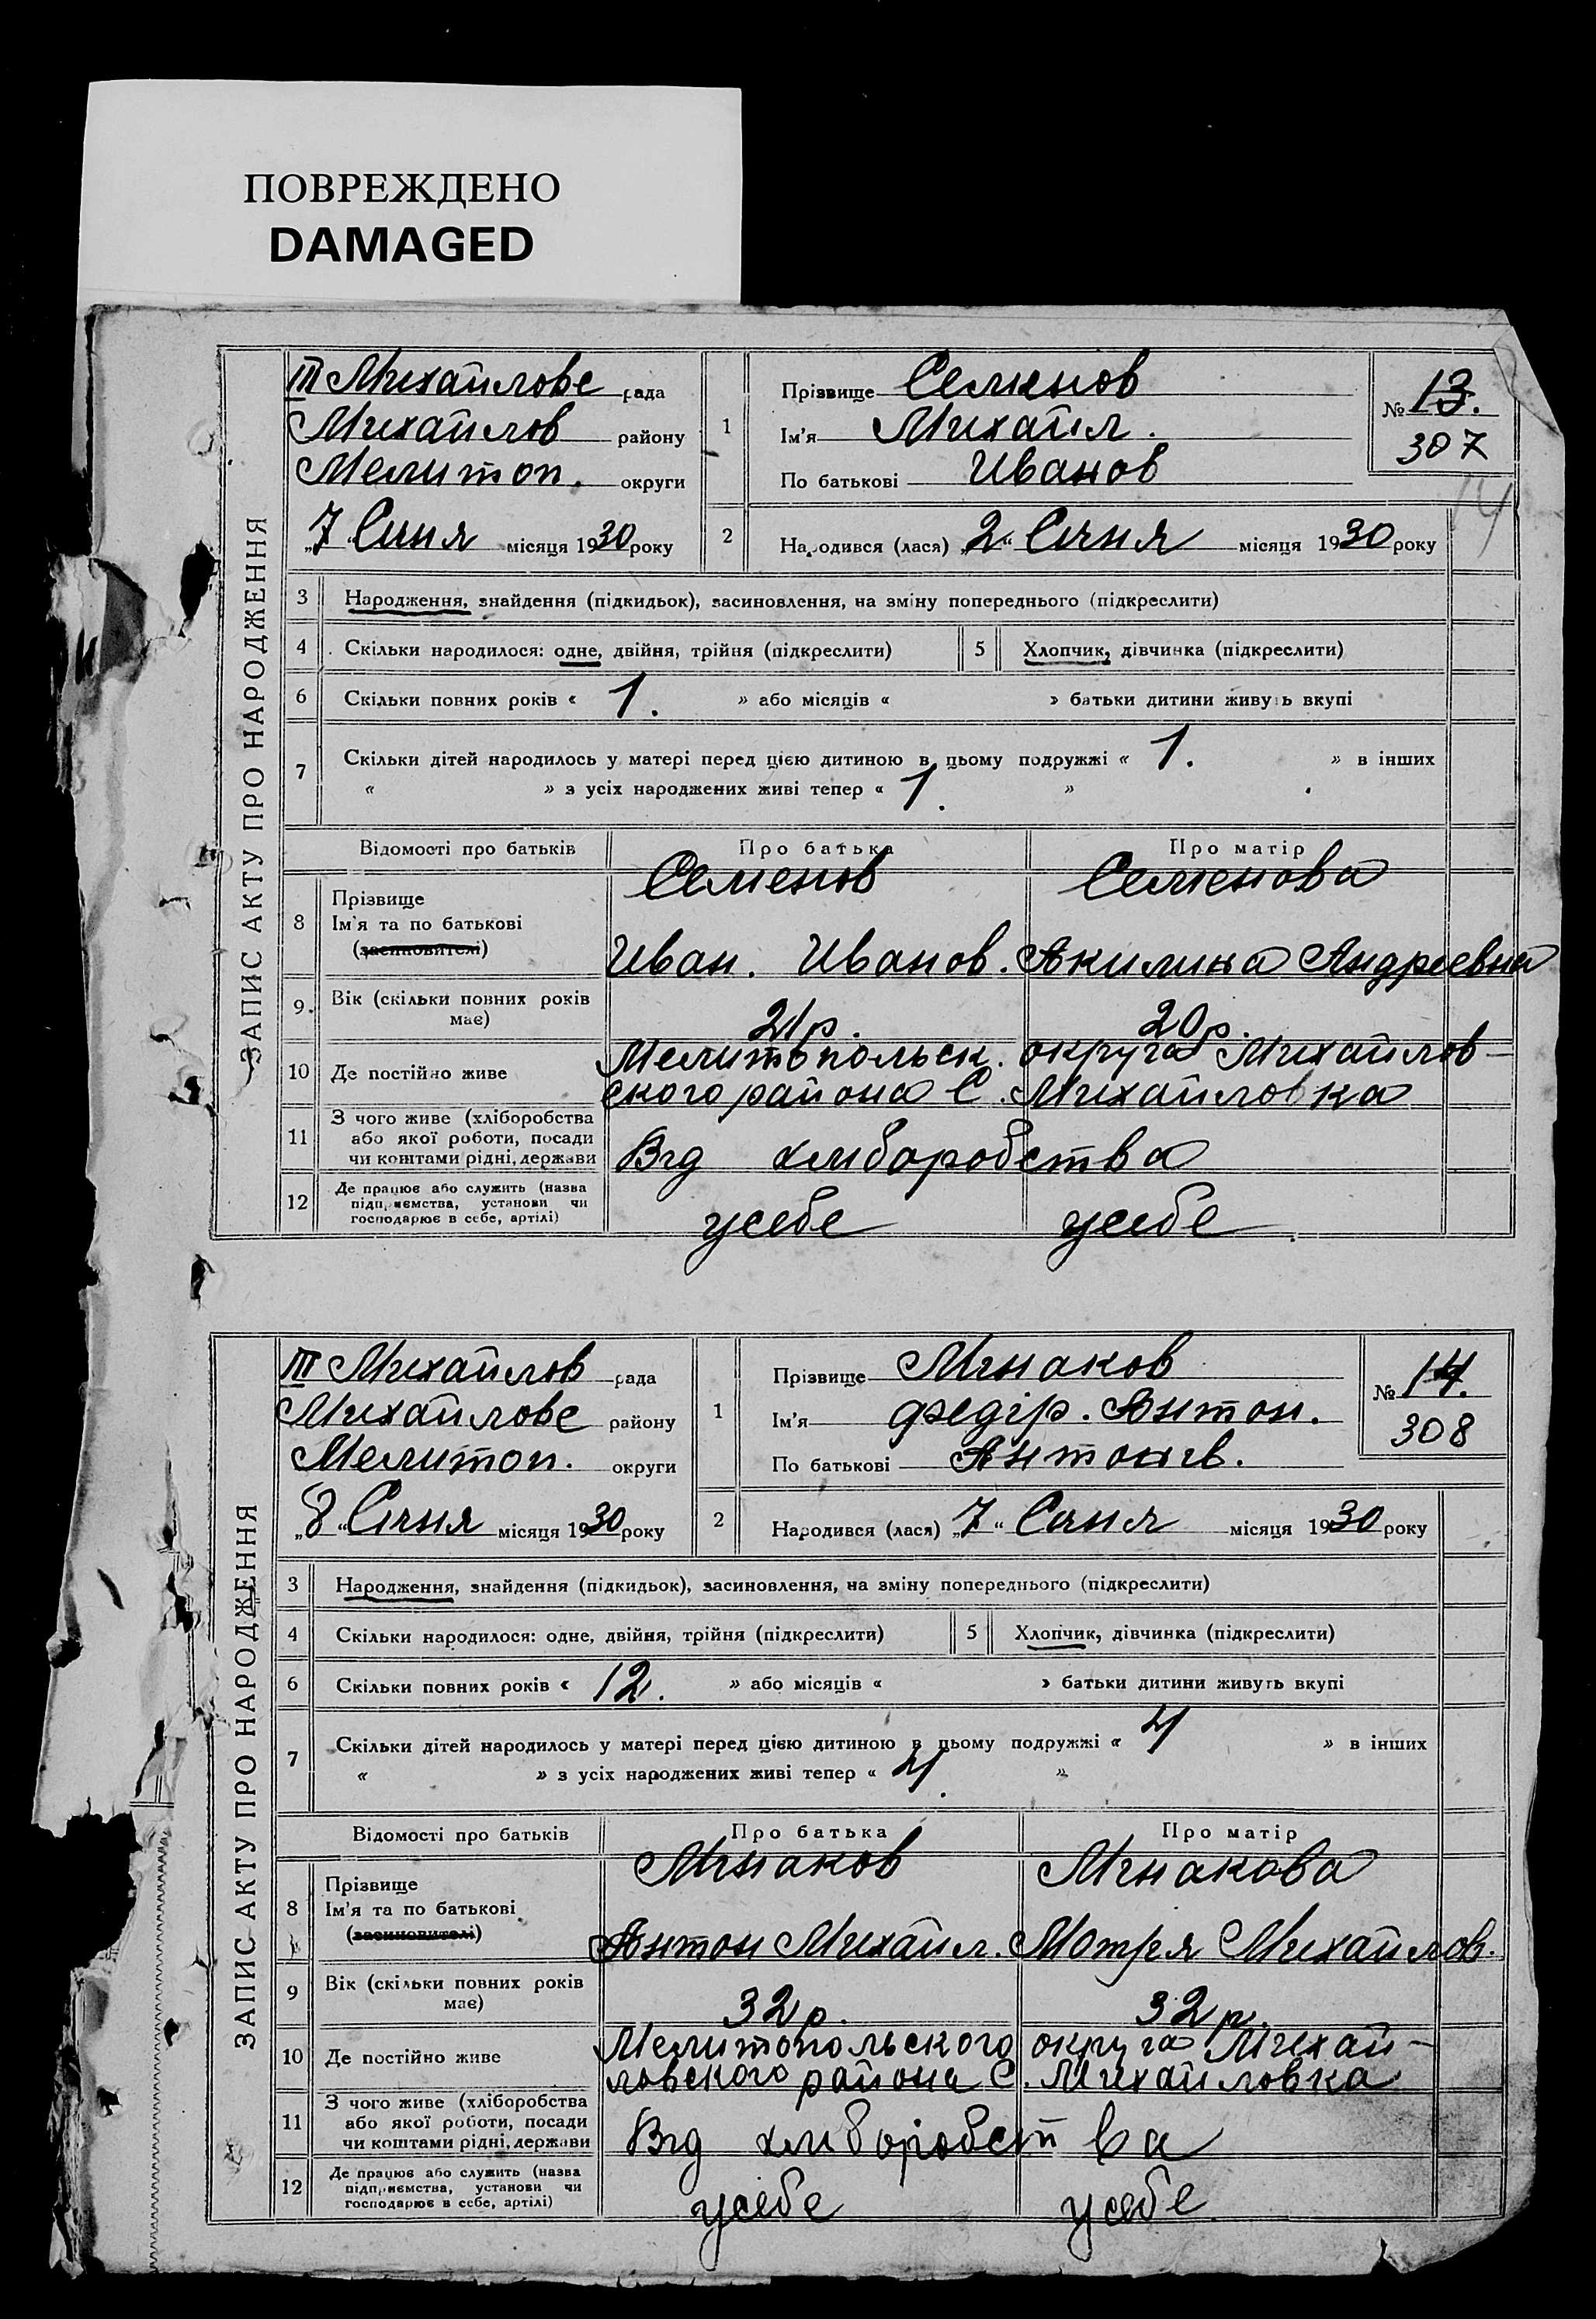 ПОВРЕЖДЕНО
DAMAGED
ЗАПИС АКТУ ПРО НАРОДЖЕННЯ
III Михайловс рада
Михайлов району
Мелитоп. округи
„7“ Січня місяця 1930 року
1 Прізвище Семенов
Ім'я Михайл.
По батькові Иванов
№ 13.
307
14
2 Народився (лася) „2“ Січня місяця 1930 року
3 Народження, знайдення (підкидьок), засиновлення, на зміну попереднього (підкреслити)
4 Скільки народилося: одне, двійня, трійня (підкреслити) 5 Хлопчик, дівчинка (підкреслити)
6 Скільки повних років « 1. » або місяців « » батьки дитини живуть вкупі
7 Скільки дітей народилось у матері перед цією дитиною в цьому подружжі « 1. » в інших
« » з усіх народжених живі тепер « 1. »
Відомості про батьків Про батька Про матір
8 Прізвище Семенов Семенова
Ім'я та по батькові
(засиновителі) Иван. Иванов. Акилина Андреевна
9. Вік (скільки повних років має) 21 р. 20 р.
10 Де постійно живе Мелитопольск. округа Михайлов-
ского района С. Михайловка
11 З чого живе (хліборобства
або якої роботи, посади
чи коштами рідні, держави Від хліборобства
12 Де працює або служить (назва
підприємства, установи чи
господарює в себе, артілі) усебе усебе
ЗАПИС АКТУ ПРО НАРОДЖЕННЯ
III Михайлов рада
Михайловс району
Мелитоп. округи
„8“ Січня місяця 1930 року
1 Прізвище Мінаков
Ім'я Федір. Антон.
По батькові Антонів.
№ 14.
308
2 Народився (лася) „7“ Січня місяця 1930 року
3 Народження, знайдення (підкидьок), засиновлення, на зміну попереднього (підкреслити)
4 Скільки народилося: одне, двійня, трійня (підкреслити) 5 Хлопчик, дівчинка (підкреслити)
6 Скільки повних років « 12. » або місяців « » батьки дитини живуть вкупі
7 Скільки дітей народилось у матері перед цією дитиною в цьому подружжі « 4 » в інших
« » з усіх народжених живі тепер « 4. »
Відомості про батьків Про батька Про матір
8 Прізвище Мінаков Мінакова
Ім'я та по батькові
(засиновителі) Антон Михайл. Мотря Михайлов.
9 Вік (скільки повних років має) 32 р. 32 р.
10 Де постійно живе Мелитопольского округа Михай-
ловского района С. Михайловка
11 З чого живе (хліборобства
або якої роботи, посади
чи коштами рідні, держави Від хліборобства
12 Де працює або служить (назва
підприємства, установи чи
господарює в себе, артілі) усебе усебе